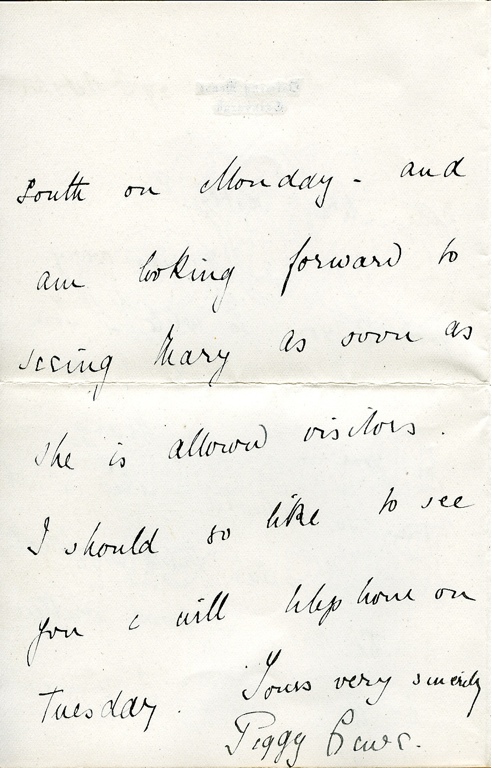 South on Monday - and
am looking forward to
seeing Mary as soon as
she is allowed visitors.
I should so like to see
you & will telephone on
Tuesday. Yours very sincerely
Peggy